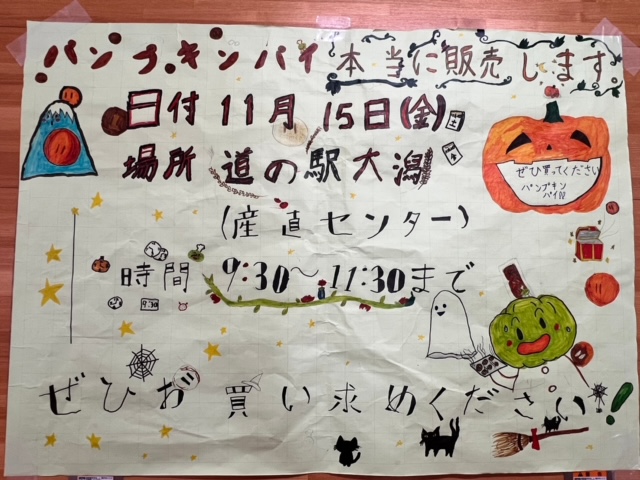 パンプキンパイ本当に販売します
日付 11月 15日(金)
場所 道の駅大潟
ぜひ買ってください
パンプキン
(産直センター)
時間 9:30～11:30まで
9:30
ぜひお買い求めください